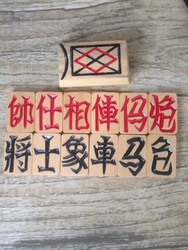 帥仕相俥㐷炮
將士象車马包